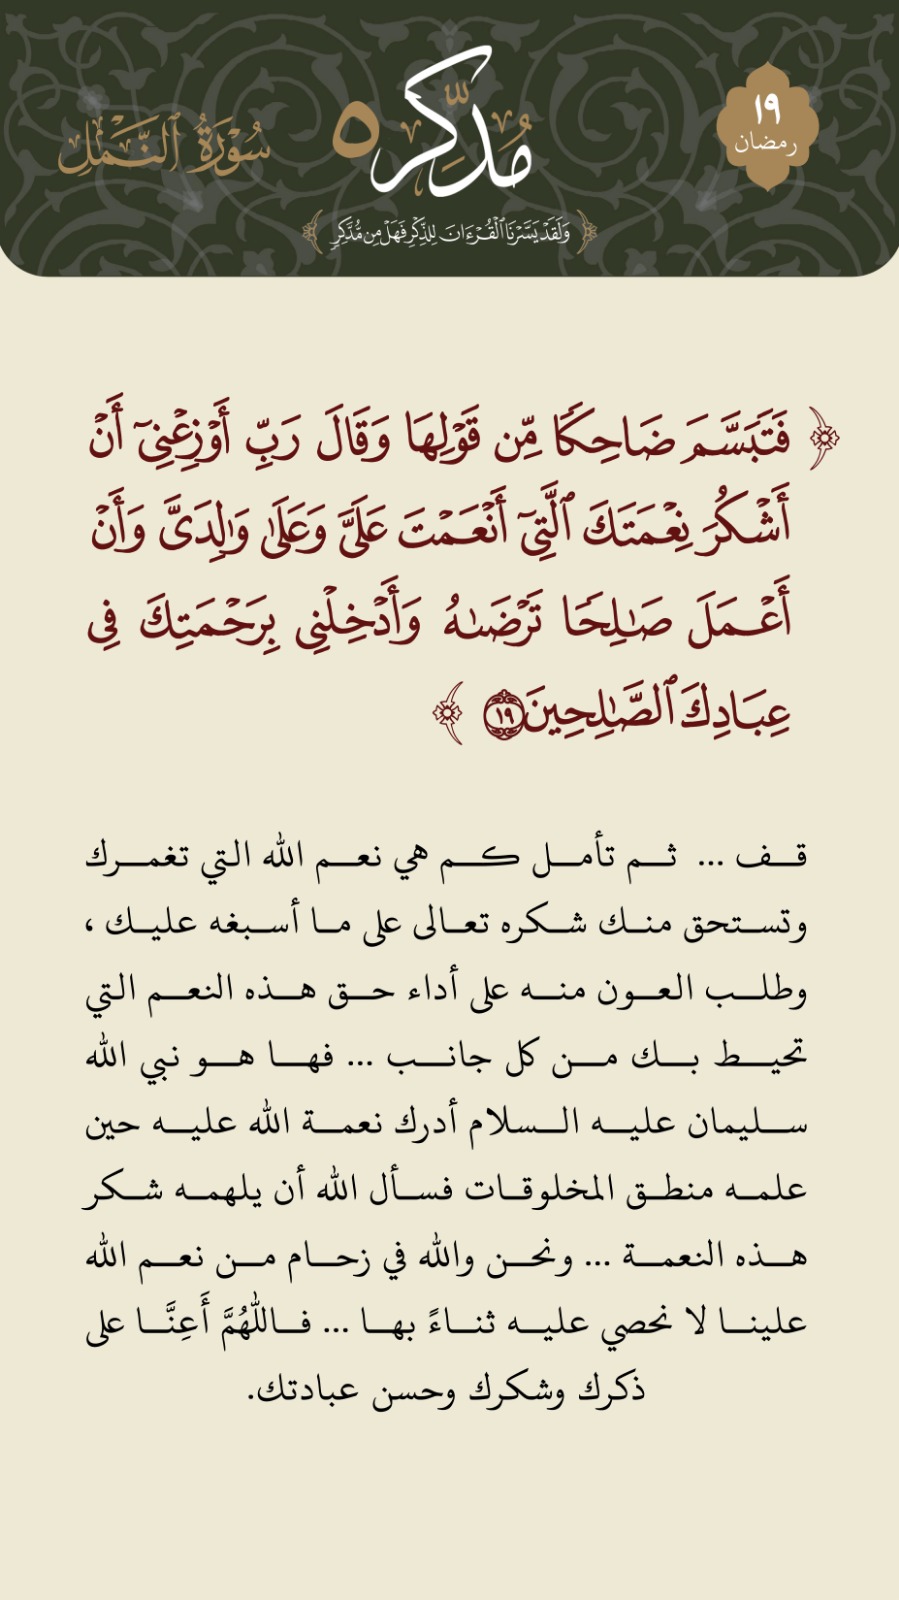 ١٩
رمضان
مُدَّكِر ٥
سُورَةُ ٱلنَّمۡلِ
﴿ وَلَقَدۡ يَسَّرۡنَا ٱلۡقُرۡءَانَ لِلذِّكۡرِ فَهَلۡ مِن مُّدَّكِرٖ ﴾
﴿ فَتَبَسَّمَ ضَاحِكٗا مِّن قَوۡلِهَا وَقَالَ رَبِّ أَوۡزِعۡنِيٓ أَنۡ
أَشۡكُرَ نِعۡمَتَكَ ٱلَّتِيٓ أَنۡعَمۡتَ عَلَيَّ وَعَلَىٰ وَٰلِدَيَّ وَأَنۡ
أَعۡمَلَ صَٰلِحٗا تَرۡضَىٰهُ وَأَدۡخِلۡنِي بِرَحۡمَتِكَ فِي
عِبَادِكَ ٱلصَّٰلِحِينَ ١٩ ﴾
قف ... ثم تأمل كم هي نعم الله التي تغمرك
وتستحق منك شكره تعالى على ما أسبغه عليك ،
وطلب العون منه على أداء حق هذه النعم التي
تحيط بك من كل جانب ... فها هو نبي الله
سليمان عليه السلام أدرك نعمة الله عليه حين
علمه منطق المخلوقات فسأل الله أن يلهمه شكر
هذه النعمة ... ونحن والله في زحام من نعم الله
علينا لا نحصي عليه ثناءً بها ... فاللهُمَّ أَعِنَّا على
ذكرك وشكرك وحسن عبادتك.